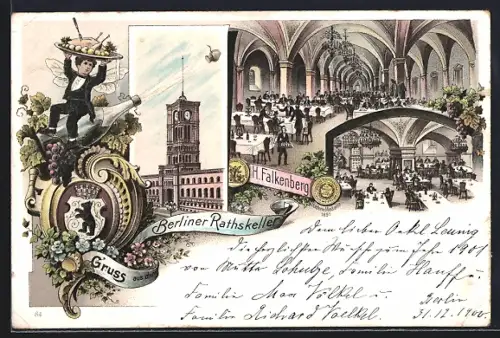 H. Falkenberg
Berliner Rathskeller
Gruss aus dem
Dem lieben Onkel
Die herzlichsten zum Jahr 1901
von Mutter Schulze, Familie Hauff u.
Familie Max Völkel u.
Familie Richard Voelkel.
Berlin
31.12.1900.